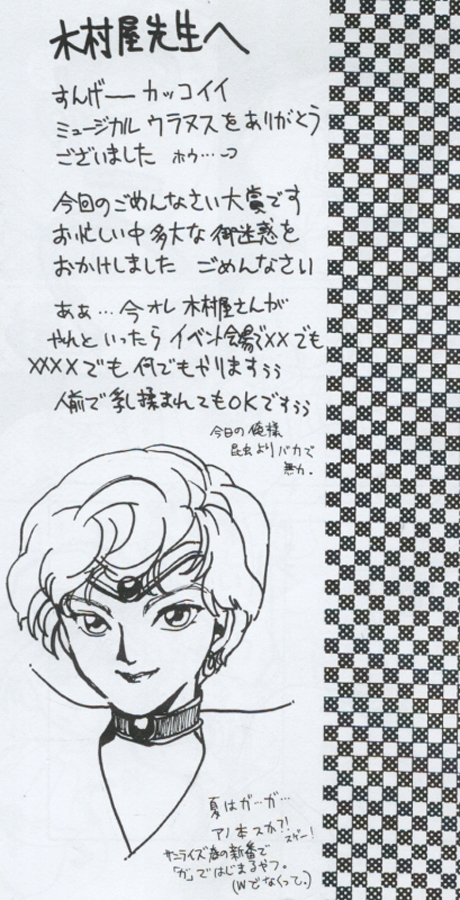 木村屋先生へ
すんげー カッコイイ
ミュージカル ウラヌスを ありがとう
ございました ホウ…
今回のごめんなさい大賞です
お忙しい中 多大な 御迷惑を
おかけしました ごめんなさい
ああ… 今 オレ 木村屋さんが
やれと いったら イベント会場で××でも
××××でも 何でもやりますぅぅ
人前で乳揉まれてもOKですぅぅ
今日の俺様
昆虫よりバカで
無力。
夏はガ…ガ…
アノ本スか?!
スゲー!
サンライズ 春の新番で
「ガ」ではじまるやつ。
(Wでなくって。)